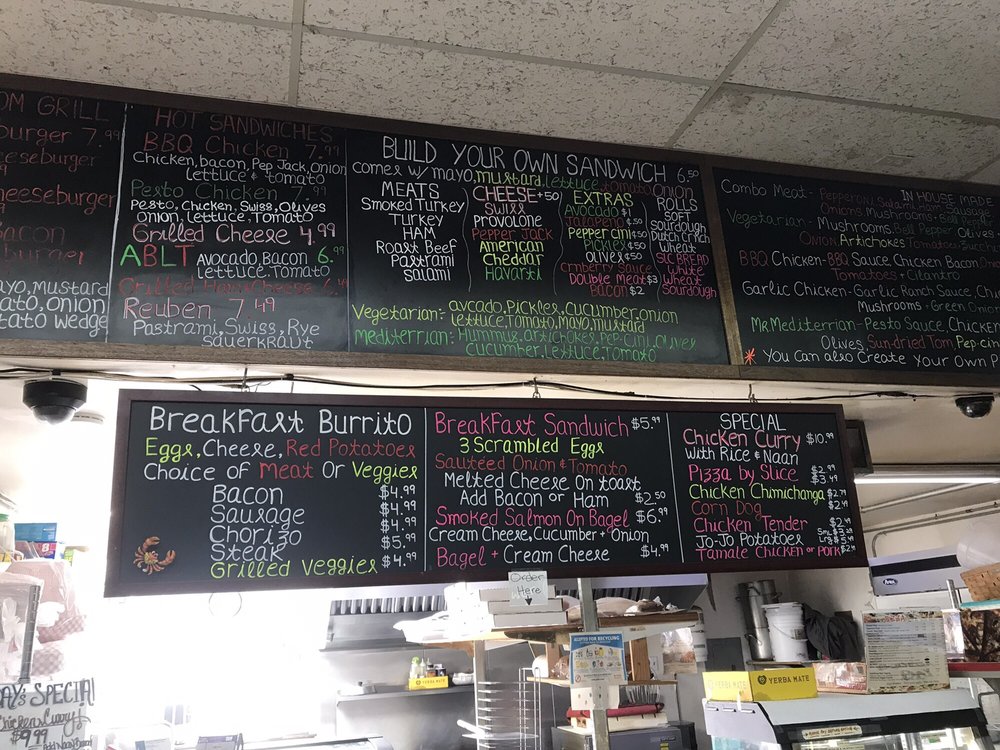 OM GRILL
burger 7.99
eeseburger
heeseburger
Bacon
urger
ayo, Mustard
ato, Onion
tato Wedge
HOT SANDWICHES
BBQ Chicken 7.99
Chicken, bacon, Pep Jack, Onion
Lettuce & tomato
Pesto Chicken 7.99
Pesto, Chicken, Swiss, Olives
onion, Lettuce, Tomato
Grilled Cheese 4.99
ABLT Avocado, Bacon 6.99
Lettuce, Tomato
Grilled Ham & Cheese 6.49
Reuben 7.49
Pastrami, Swiss, Rye
sauerkraut
BUILD YOUR OWN SANDWICH 6.50
comes w/ mayo, mustard, lettuce, tomato Onion
MEATS
Smoked Turkey
Turkey
HAM
Roast Beef
Pastrami
Salami
CHEESE +.50
Swiss
PROVOLONE
Pepper Jack
American
Cheddar
Havarti
EXTRAS
Avocado $1
Jalapeno $.50
Pepper cini $.50
Pickles $.50
olives $.50
cranberry sauce
Double Meat $3
Bacon $2
ROLLS
SOFT
Sourdough
Dutch Crunch
Wheat
SLC BREAD
White
Wheat
Sourdough
Vegetarian- avocado, Pickles, Cucumber, onion
lettuce, Tomato, Mayo, mustard
Mediterrien- Hummus, Artichokes, Pep-cini, Olives
cucumber, Lettuce, Tomato
IN HOUSE MADE
Combo Meat- Pepperoni, Salami, Ham, Sausage
Onions Mushrooms, Bell
Vegetarian- Mushrooms, Bell Pepper, Olives
Onion, Artichokes Tomatoes, Zucchi
BBQ Chicken-BBQ Sauce Chicken Bacon
Tomatoes + Cilantro
Garlic Chicken-Garlic Ranch Sauce, Chi
Mushrooms - Green Onio
Mr Mediterrian-Pesto Sauce, Chicken
Olives, Sun-dried Tom, Pep-cin
* You Can also Create Your Own P
Breakfast Burrito
Eggs, Cheese, Red Potatoes
Choice of Meat Or Veggies
Bacon $4.99
Sausage $4.99
Chorizo $4.99
Steak $5.99
Grilled Veggies $4.99
Breakfast Sandwich $5.99
3 Scrambled Eggs
Sauteed Onion & Tomato
Melted Cheese On toast
Add Bacon or Ham $2.50
Smoked Salmon On Bagel $6.99
Cream Cheese, Cucumber + Onion
Bagel + Cream Cheese $4.99
SPECIAL
Chicken Curry $10.99
With Rice & Naan
Pizza by Slice $2.99
$3.49
Chicken Chimichanga $2.79
Corn Dog $2.49
Chicken Tender $2.49
Jo-Jo Potatoes
Tamale Chicken or Pork $2.49
Order
Here
AY'S SPECIAL
Chicken Curry
$9.99
YERBA MATE